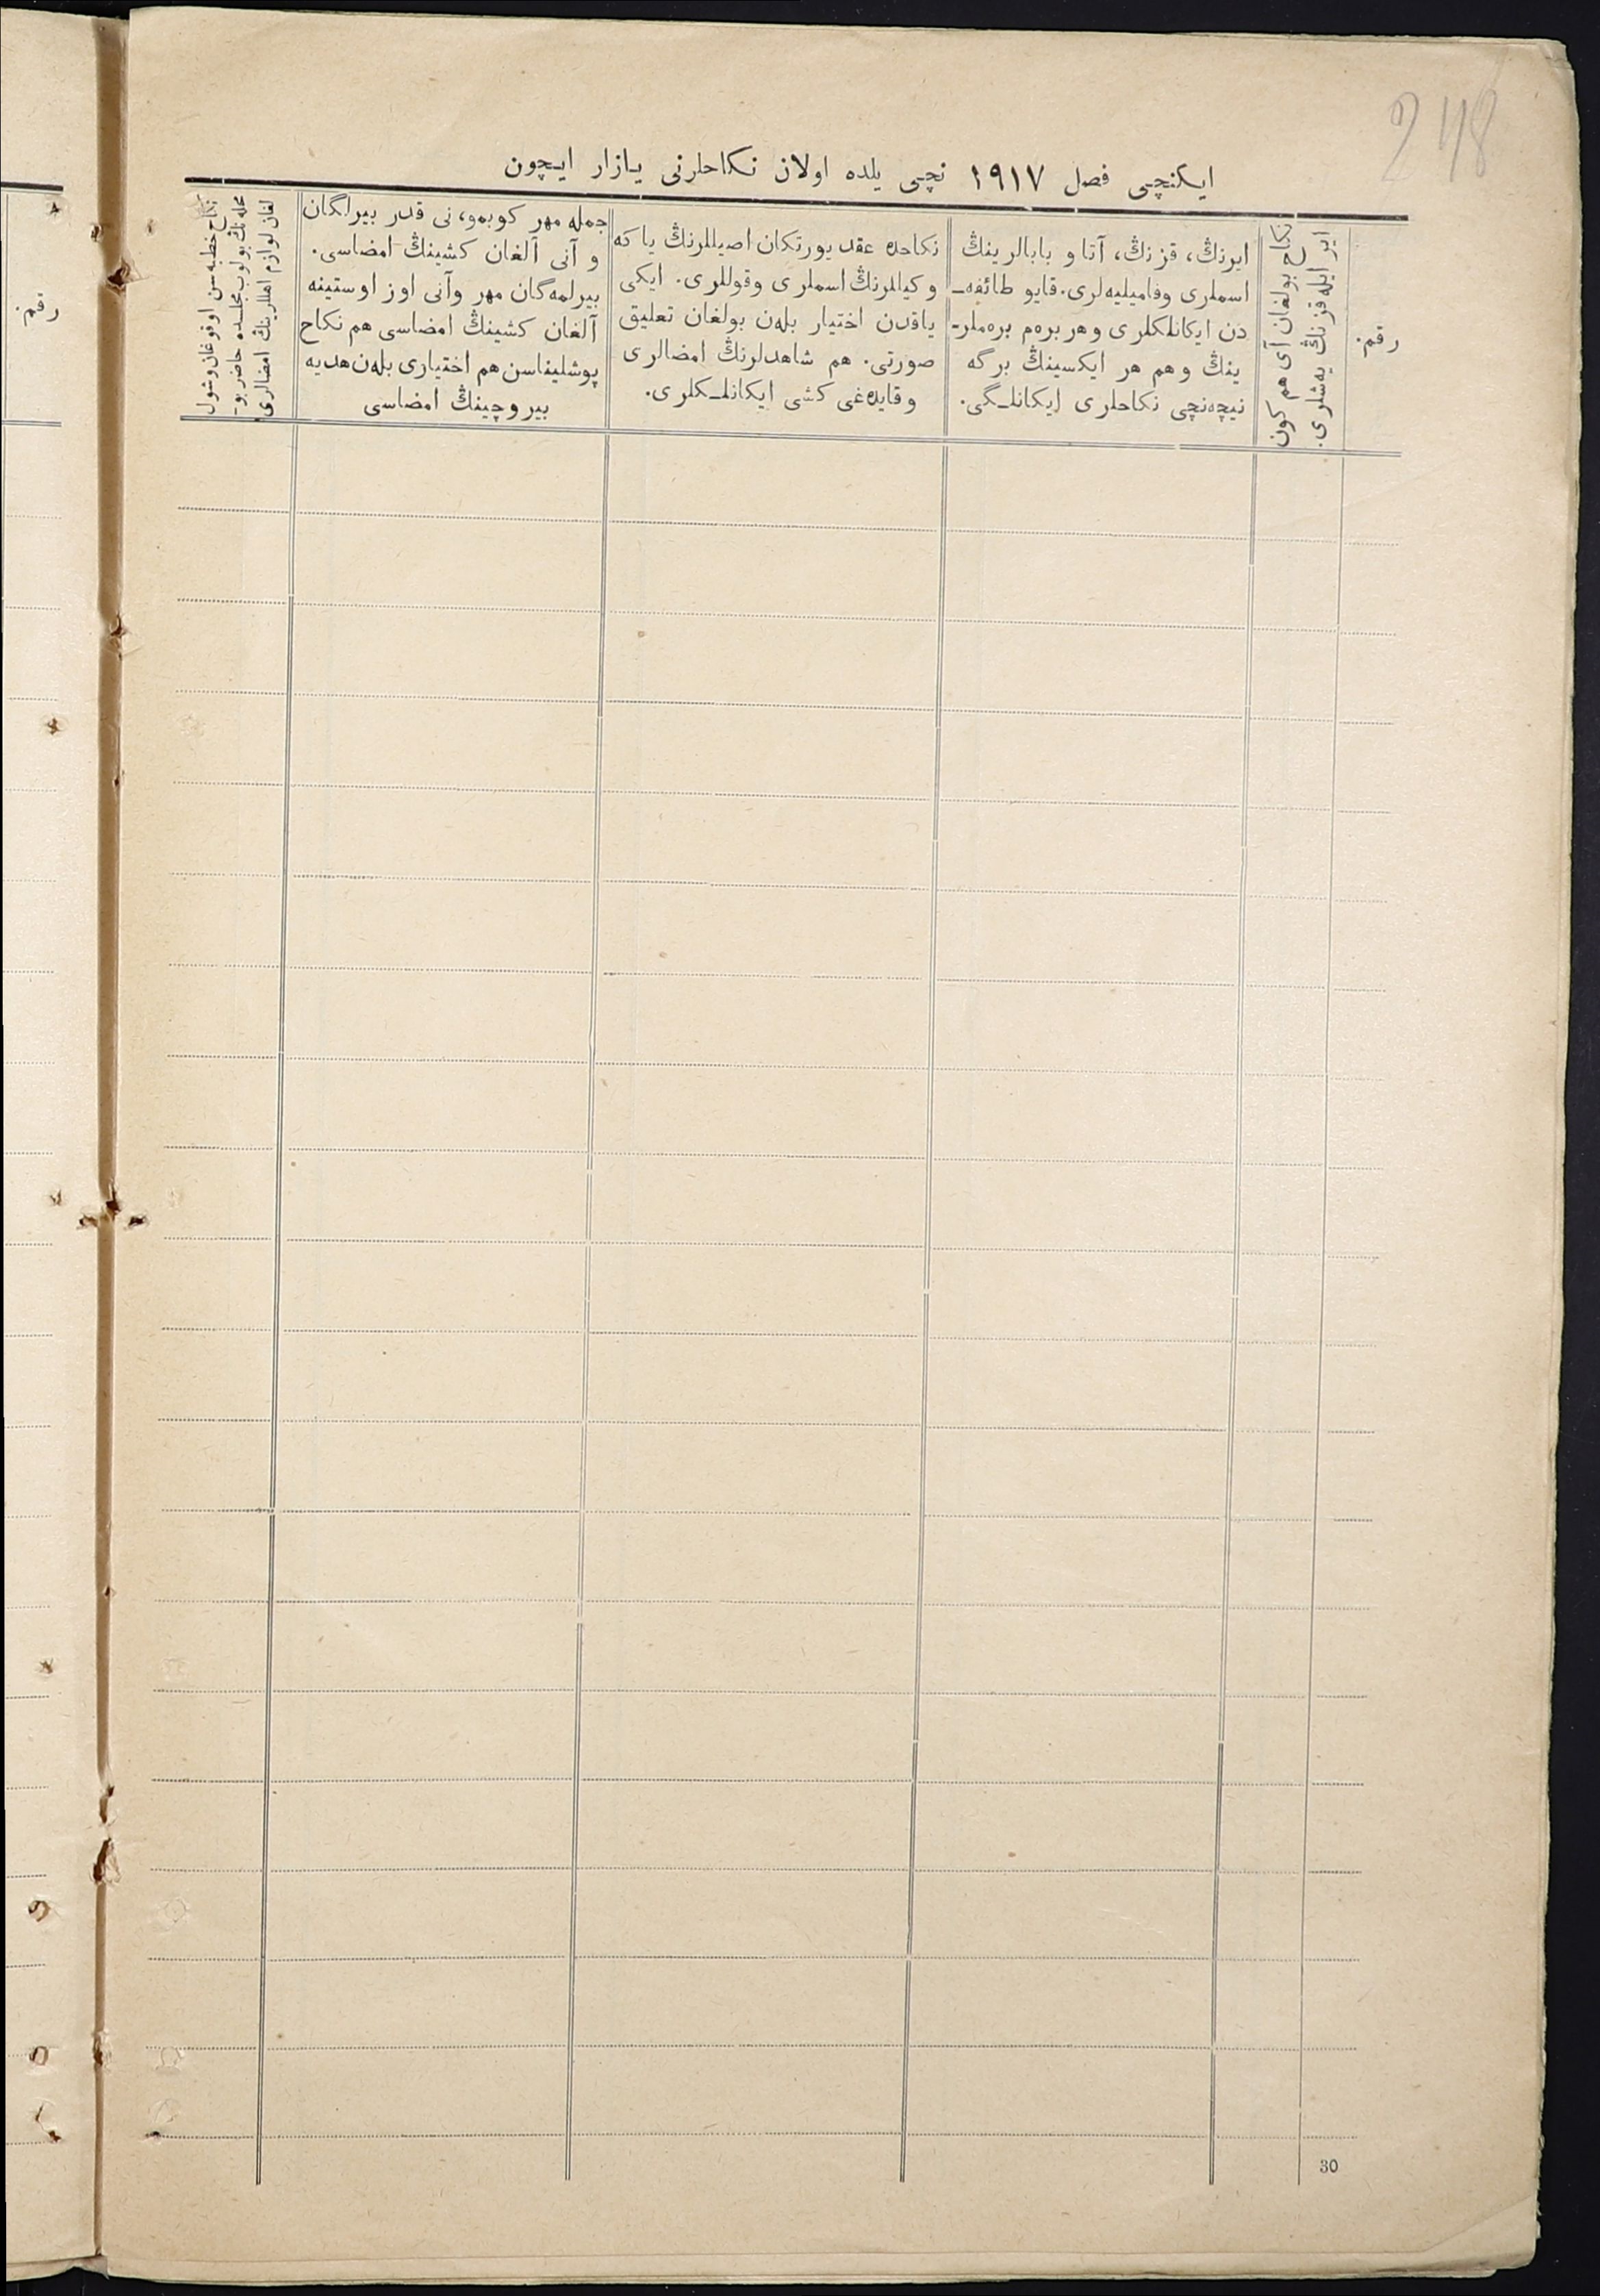 248
ایکنچی فصل ۱۹۱۷ نچی یلده اولان نکاحلرنی یازار ایچون
رقم.
ایر ایله قزنڭ یه‌شلری.
نکاح بولغان آی هم کون
ایرنڭ، قزنڭ، آتا و بابالرینڭ
اسملری وفامیلیه‌لری. قایو طائفه‌ـ
دن ایکانلکلری وهر بره‌م بره‌ملر-
ینڭ وهم هر ایکسینڭ برگه
نیچه‌نچی نکاحلری ایکانلـگی.
نکاحده عقد یورتکان اصیللرنڭ یا که
وکیللرنڭ اسملری وقوللری. ایکی
یاقدن اختیار بله‌ن بولغان تعلیق
صورتی. هم شاهدلرنڭ امضالری
وقایده‌غی کشی ایکانلـکلری.
جمله مهر کوبمو، نی قدر بیرلگان
و آنی آلغان کشینڭ امضاسی.
بیرلمه‌گان مهر وآنی اوز اوستینه
آلغان کشینڭ امضاسی هم نکاح
پوشلیناسن هم اختیاری بله‌ن هدیه
بیروچینڭ امضاسی
نکاح خطبه‌سن اوقوغان وشول
محله‌نڭ بولوب مجلـسده حاضر بو-
لغان لوازم اهللرینڭ امضالری
رقم.
30